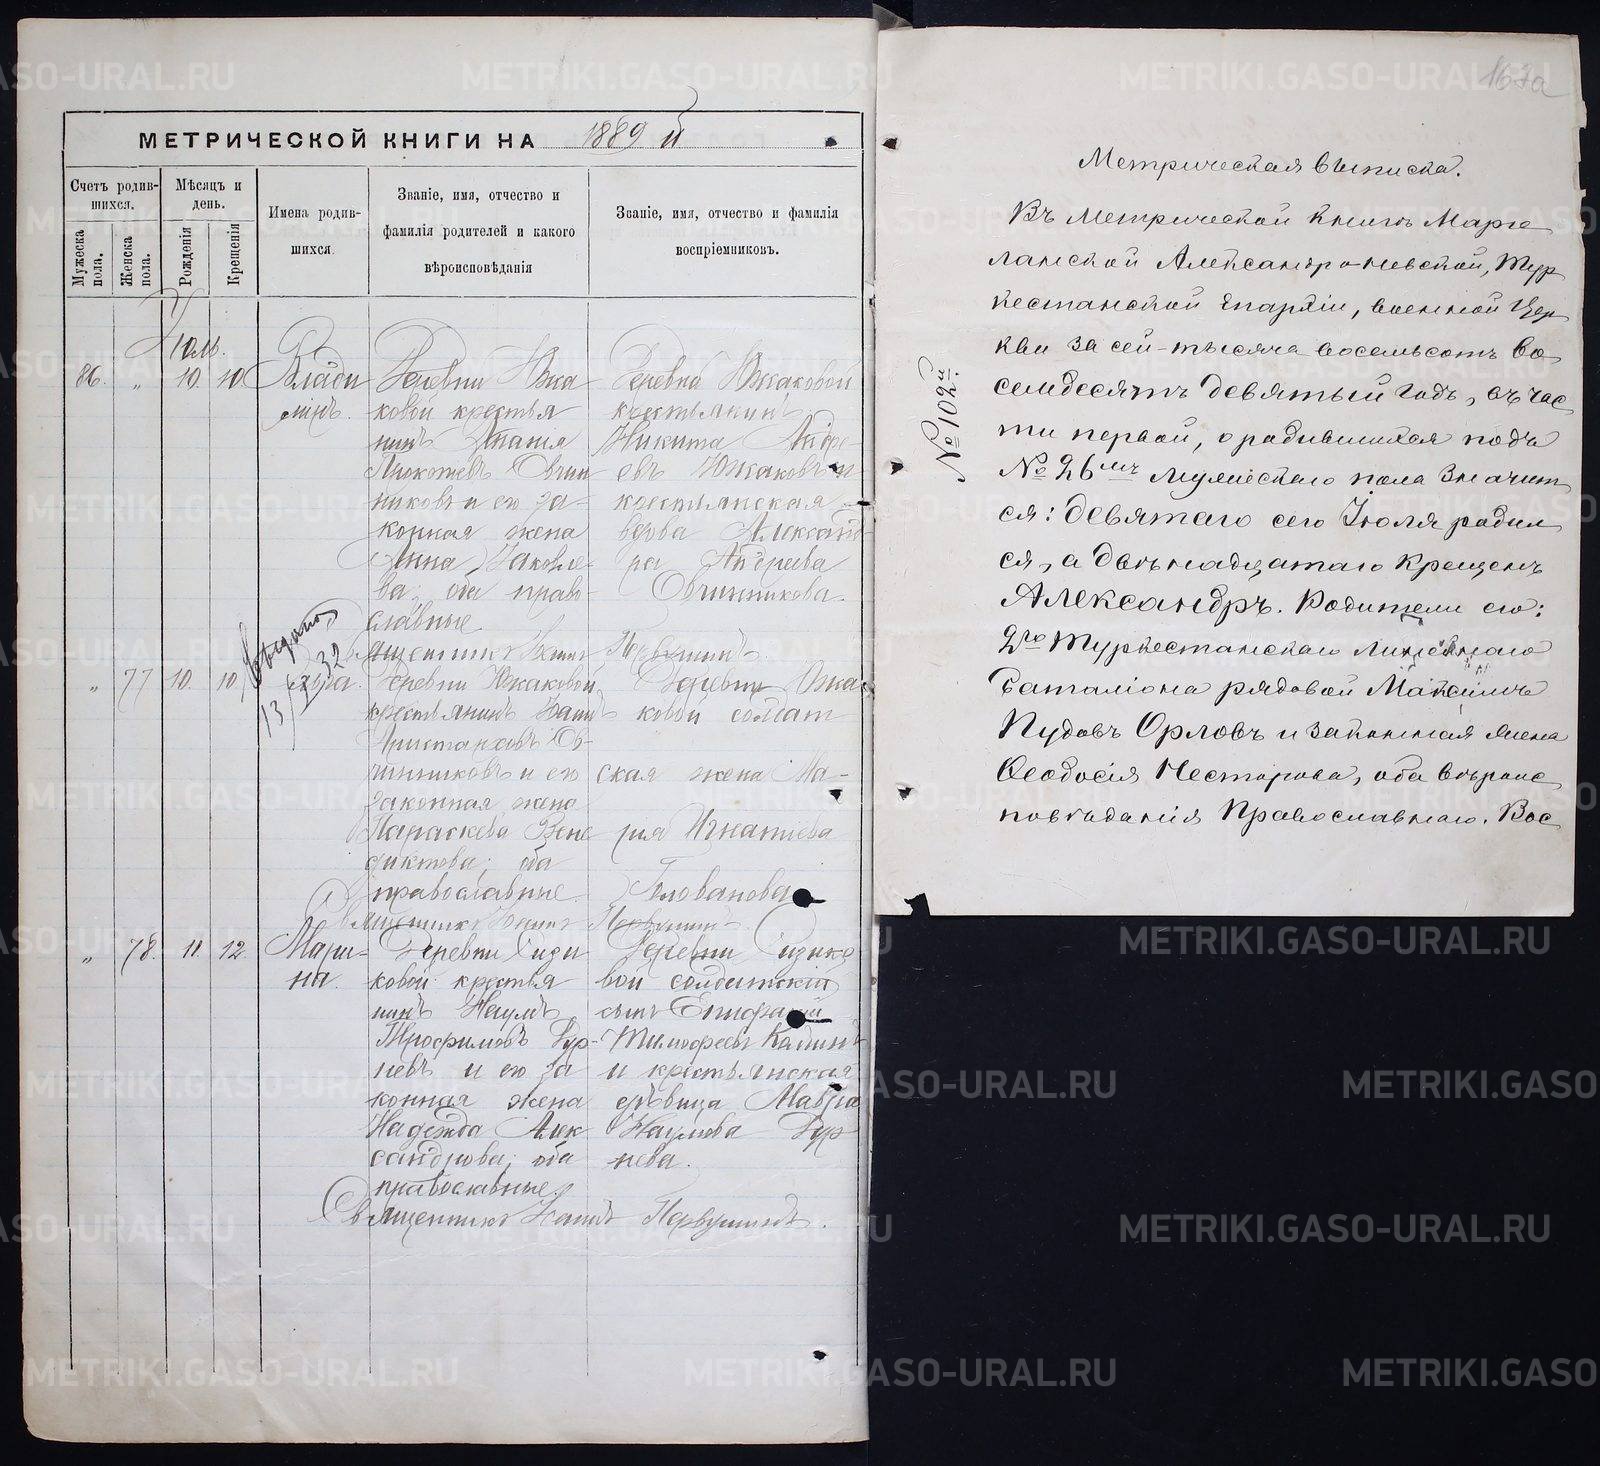 МЕТРИЧЕСКОЙ КНИГИ НА 1889 й
Счетъ родив-
шихся.
Мѣсяцъ и
день.
Имена родив-
шихся.
Званіе, имя, отчество и
фамилія родителей и какого
вѣроисповѣданія
Званіе, имя, отчество и фамилія
воспріемниковъ.
Мужеска
пола.
Женска
пола.
Рожденія
Крещенія
Іюль.
86. „ 10. 10
Влади
міръ.
Деревни Южа
ковой крестья
нинъ
Овчин
никовъ и его за-
конная жена
Анна Іаковле-
ва, оба право-
славные
Деревни Южаковой
крестьянинъ
Никита Андре-
евъ Южаковъ и
крестьянская
вдова Александ-
ра Андреева
Овчинникова.
Священникъ Іоаннъ Первушинъ.
„ 77 10. 10
13/ 32
Деревни Южаковой
крестьянинъ Іоаннъ
Аристарховъ Ов-
чинниковъ и его
законная жена
Параскева Вене
диктова; оба
православные.
Деревни Южа
ковой солдат
ская жена Ма-
рія Игнатіева
Голованова
Священникъ Іоаннъ Первушинъ.
„ 78. 11. 12.
Мари-
на.
Деревни Сизи
ковой крестья
нинъ Наумъ
Трофимовъ Гур-
невъ и его за
конная жена
Надежда Алек
сандрова; оба
православные.
Деревни Сизико
вой солдатскій
сынъ Епифаній
Тимофеевъ
и крестьянская
дѣвица Мавра
Наумова Гур
нева.
Священникъ Іоаннъ Первушинъ.
163а
Метрическая выписка.
№ 102й.
Въ метрической книгѣ Марге
ланской Александро-Невской, Тур
кестанской Епархіи, военной Цер
кви за сей-тысяча восемьсотъ во
семдесятъ девятый годъ, въ час
ти первой, о родившихся подъ
№ 26мъ мужескаго пола значит
ся: девятаго сего Іюля родил
ся, а двѣнадцатаго крещенъ
Александръ. Родители его:
2го Туркестанскаго линейнаго
Баталіона рядовой Максимъ
Пудовъ Орловъ и законная жена
Ѳеодосія Несторова, оба вѣроис
повѣданія Православнаго. Вос
METRIKI.GASO-URAL.RU